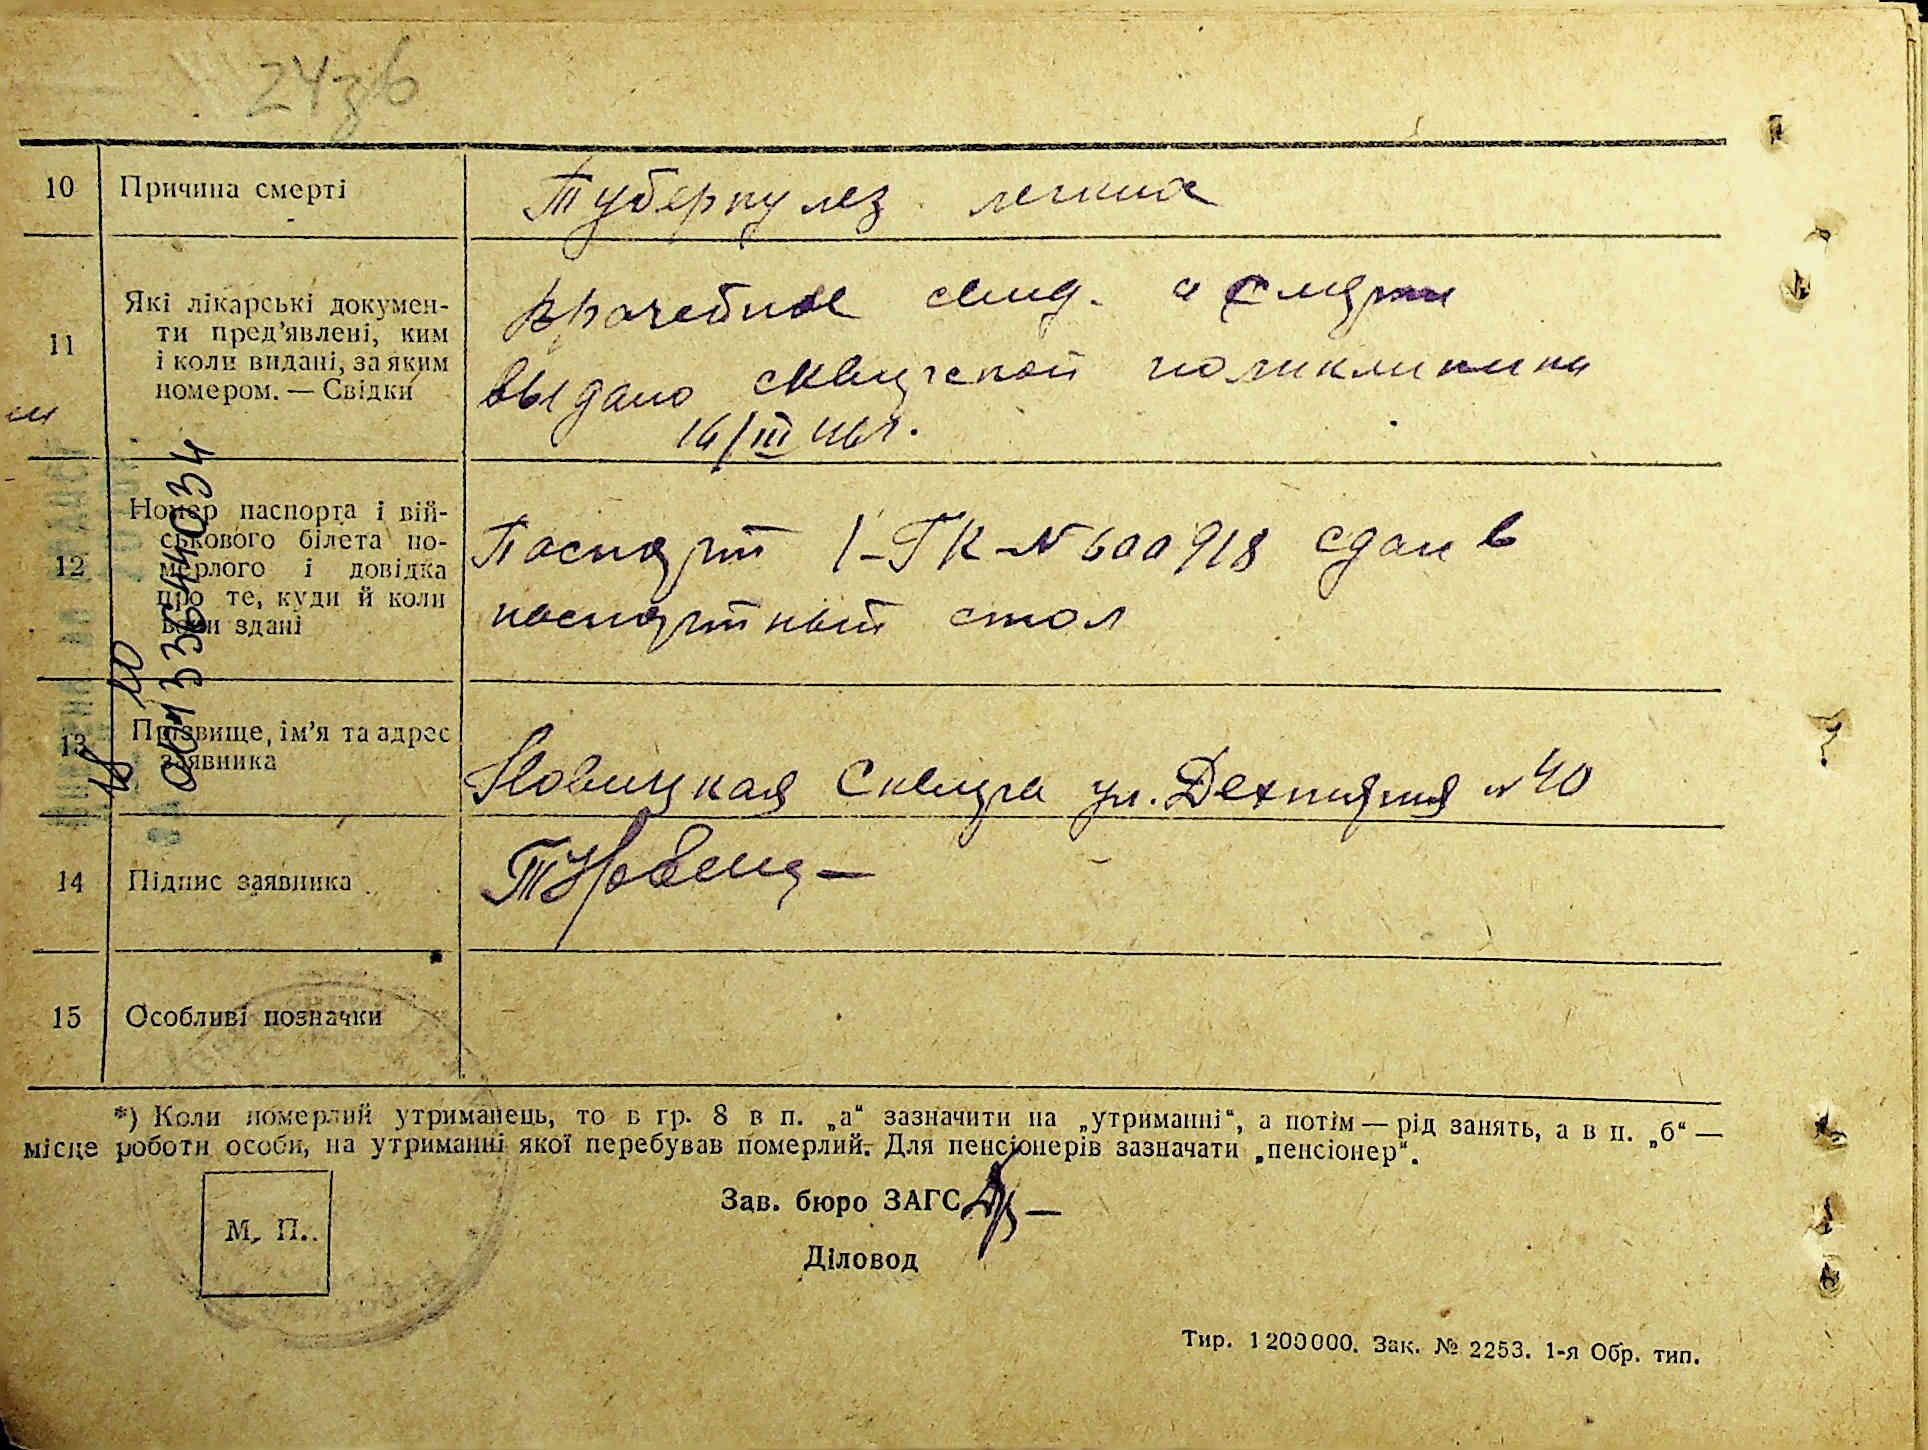 24зв
10 Причина смерті Туберкулез легких
11 Які лікарські докумен-
ти пред'явлені, ким
і коли видані, за яким
номером. — Свідки
врачебное свид. о смерти
выдано сквирской поликлиники
/III 46г.
12 Номер паспорта і вій-
ськового білета по-
мерлого і довідка
про те, куди й коли
вони здані
Паспорт 1-ГК-№ 600918 сдан в
паспортный стол
13 Прізвище, ім'я та адрес
заявника
Новицкая Сквира ул. №40
14 Підпис заявника
15 Особливі позначки
*) Коли померлий утриманець, то в гр. 8 в п. „а“ зазначити на „утриманні“, а потім — рід занять, а в п. „б“ —
місце роботи особи, на утриманні якої перебував померлий. Для пенсіонерів зазначати „пенсіонер“.
М. П.
Зав. бюро ЗАГС
Діловод
Тир. 1200000. Зак. № 2253. 1-я Обр. тип.